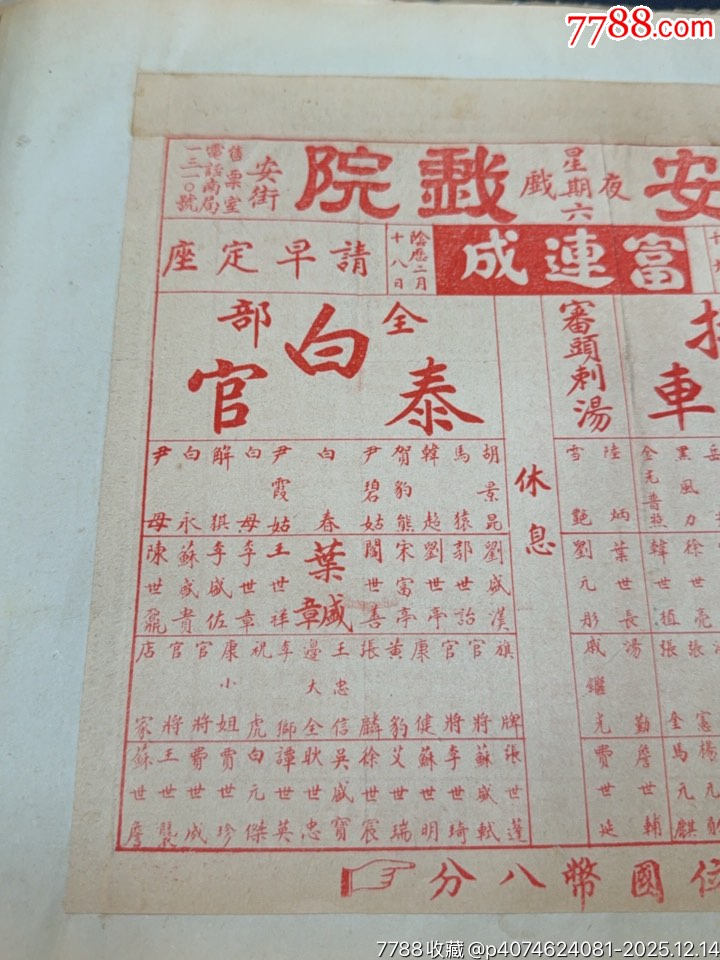 7788.com
安 夜戲 星期六 戲院
安街
舊票室
電話南局
一三一〇號
富連成
陰歷二月
十八日
請早定座
審頭刺湯
全部
白泰官
休息
胡景昆 劉盛漢
馬猿 郭世詒
韓超 劉世亭
賀豹熊 宋富亭
尹碧姑 閻世善
白春 葉盛章
尹霞姑 王世祥
白母 李世章
解猉 李盛佐
白永 蘇盛貴
尹母 陳世鼐
旗牌 張世蓬
官將 蘇盛軾
官將 李世琦
康健 蘇世明
黃豹 艾世瑞
張麟 徐世宸
王忠信 吳盛寶
邊大全 耿世忠
李獅 譚世英
祝虎 白元傑
康小姐 賈世珍
官將 費世威
官將 王世襲
店家 蘇世詹
陸炳 葉世長
雪艷 劉元彤
湯勤 詹世輔
戚繼光 賈世延
車
黑風力 徐世亮
金兀普照 韓世植
張 楊元
張奎 馬元麒
位國幣八分
7788收藏 @p4074624081-2025.12.14